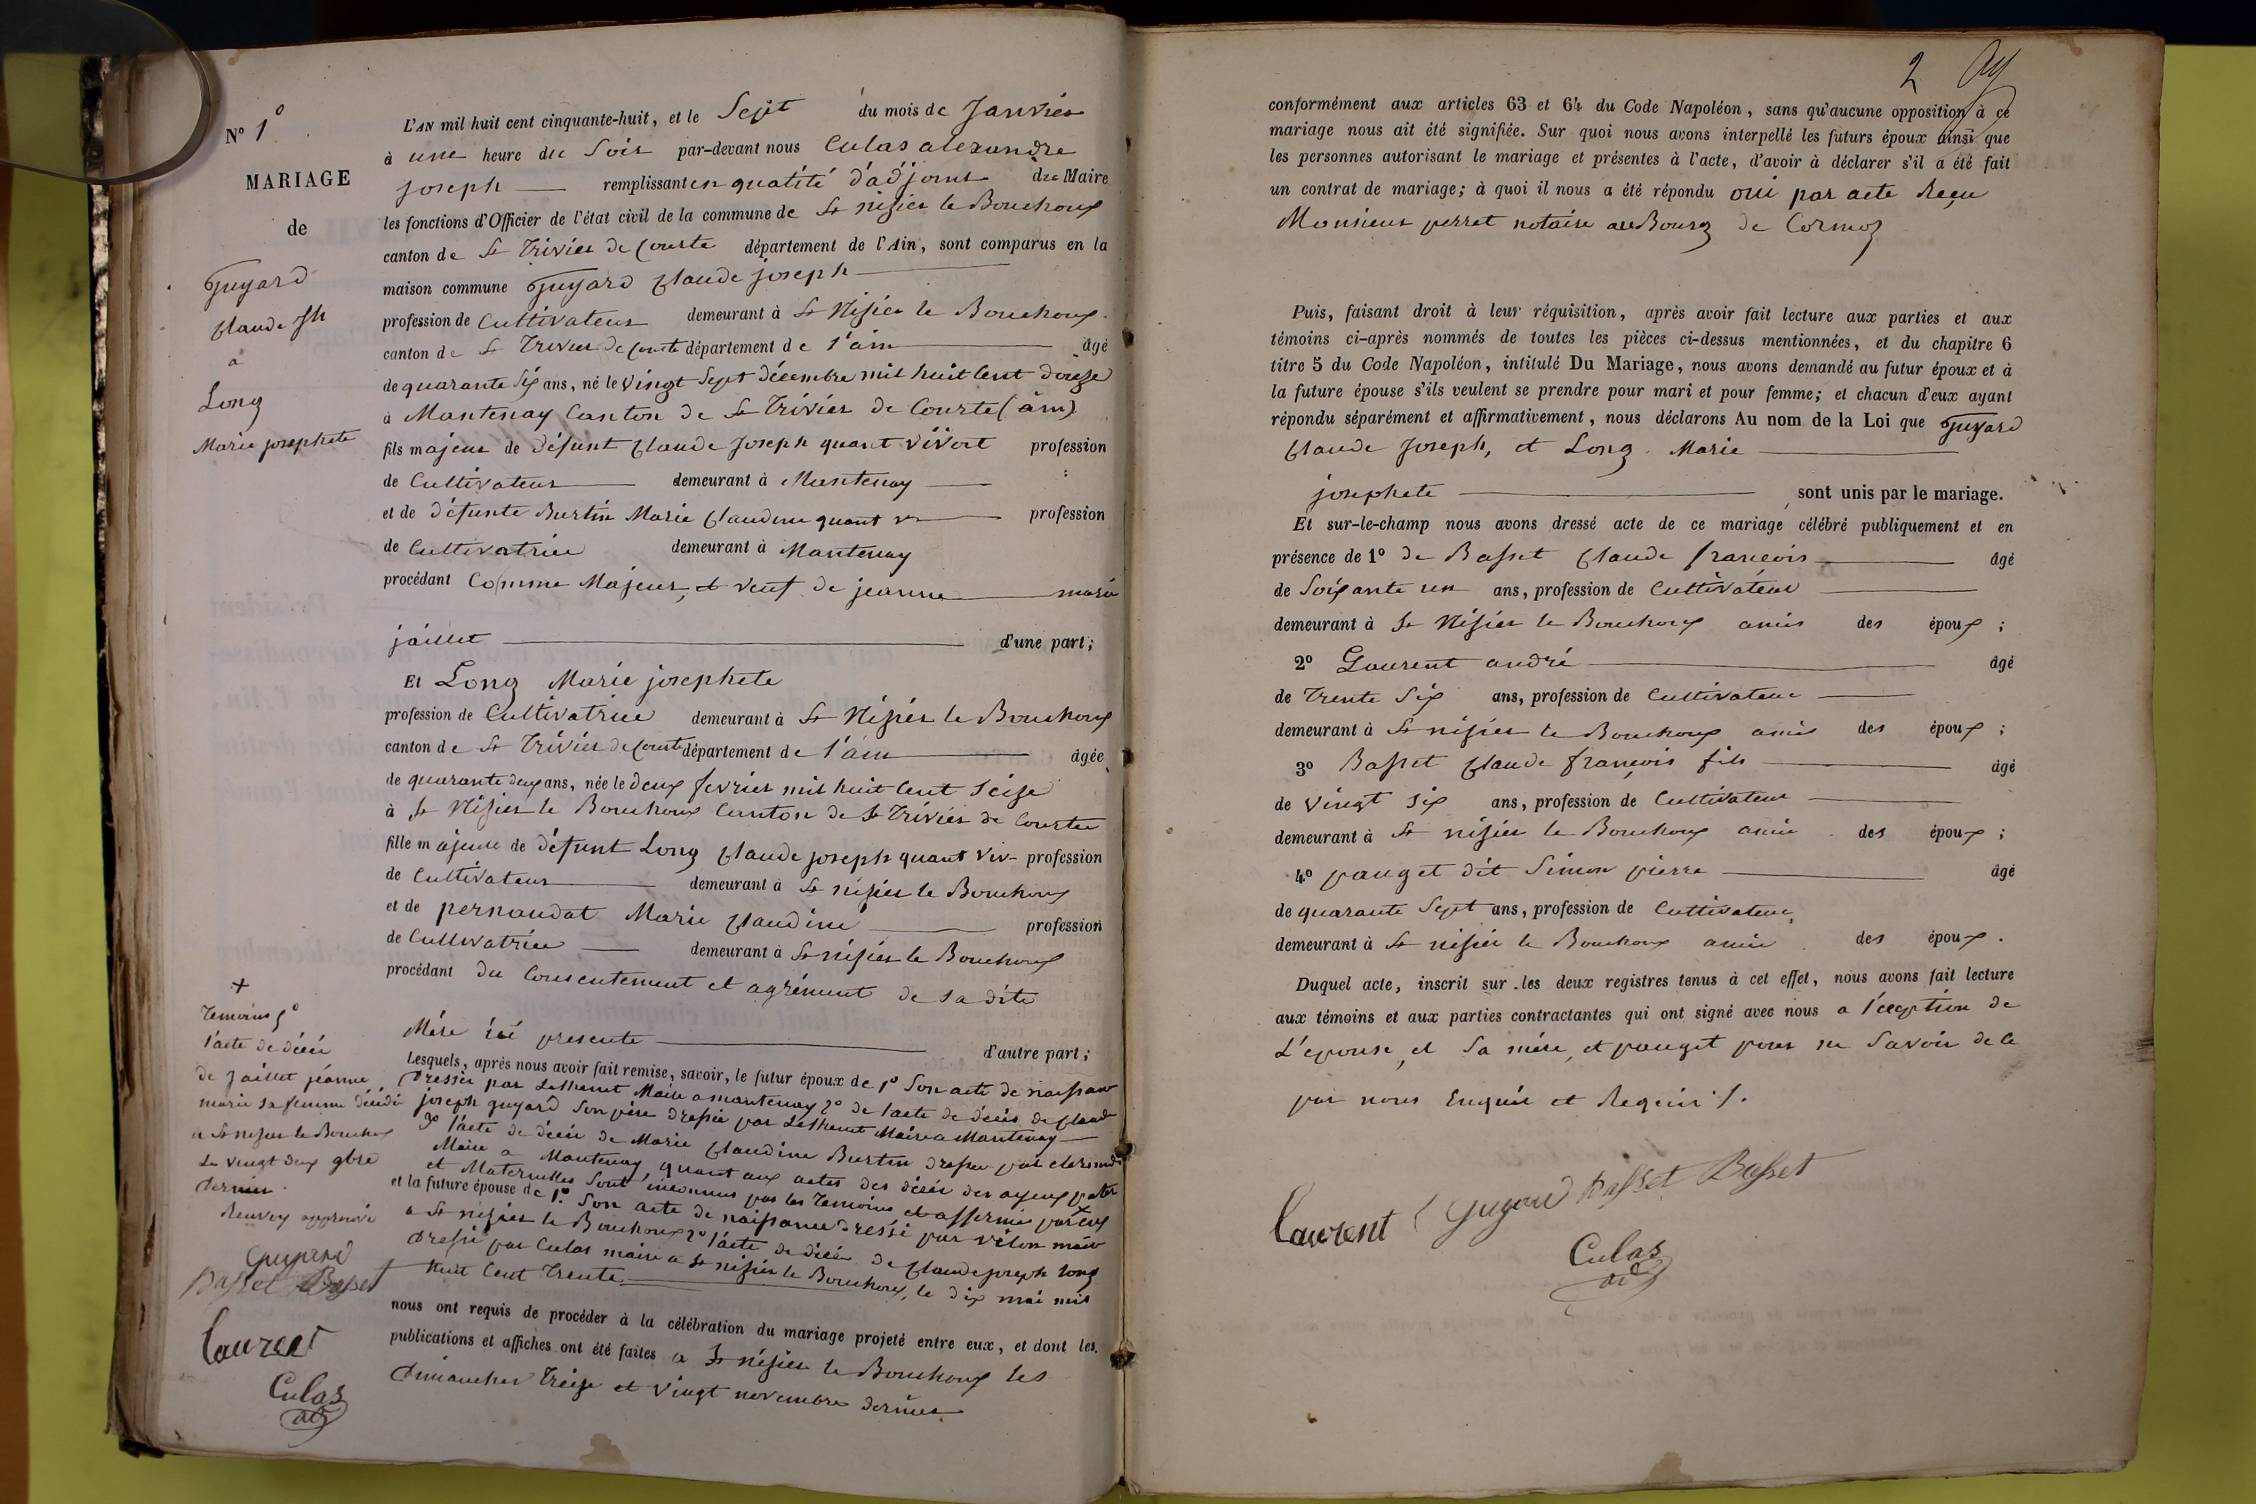 N° 1°
MARIAGE
de
Guyard
Claude Jh
a
Long
Marie josephete
L'AN mil huit cent cinquante-huit, et le Sept du mois de Janvier
à une heure du Soir par-devant nous Culas alexandre
joseph remplissant en qualité d'adjoint du Maire
les fonctions d'Officier de l'état civil de la commune de St nisier le Bouchoux
canton de St Trivier de Courte département de l'Ain, sont comparus en la
maison commune Guyard Claude joseph
profession de Cultivateur demeurant à St Nisier le Bouchoux
canton de St Trivier de Courte département de l'ain âgé
de quarante Six ans, né le vingt Sept décembre mil huit Cent douze
à Mantenay Canton de St Trivier de Courte (ain)
fils majeur de défunt Claude Joseph quant vivoit profession
de Cultivateur demeurant à Mantenay
et de défunte Burtin Marie Claudine quant v profession
de Cultivatrice demeurant à Mantenay
procédant Comme Majeur, et veuf de jeanne marie
jaillet d'une part;
Et Long Marie josephete
profession de Cultivatrice demeurant à St Nisier le Bouchoux
canton de St Trivier de Courte département de l'ain âgée
de quarante deux ans, née le deux fevrier mil huit Cent Seize
à St Nisier le Bouchoux Canton de St Trivier de Courte
fille majeure de défunt Long Claude joseph quant viv- profession
de Cultivateur demeurant à St nisier le Bouchoux
et de pernaudat Marie Claudine profession
de Cultivatrice demeurant à St nisier le Bouchoux
procédant du Consentement et agrément de sa dite
Mére ici presente d'autre part;
Lesquels, après nous avoir fait remise, savoir, le futur époux de 1° Son acte de naissance
dressé par Maire a mantenay 2° de l'acte de décès de Claude
joseph guyard Son père dressé par Maire a Mantenay
3° l'acte de décès de Marie Claudine Burtin dressé par
Maire a Mantenay, quant aux actes des décés des ayeux pater
et Maternelles Sont inconnus par les Temoins et affermie par eux
et la future épouse de 1° Son acte de naissance dressé par vilon maire
a St nisier le Bouchoux 2° l'acte de décés de Claude joseph long
dressé par Culas maire a St nisier le Bouchoux, le dix mai mil
huit Cent Trente
nous ont requis de procéder à la célébration du mariage projeté entre eux, et dont les
publications et affiches ont été faites a St nisier le Bouchoux les
dimanches Treize et vingt novembre dernier
+
Temoins 5°
l'acte de décés
de jaillet jéanne
marie sa femme décédé
a St nisier le Bouchoux
le vingt deux 9bre
dernier
Renvoy approuvé
Guyard
Basset Basset
Laurent
Culas
adj
2
conformément aux articles 63 et 64 du Code Napoléon, sans qu'aucune opposition à ce
mariage nous ait été signifiée. Sur quoi nous avons interpellé les futurs époux ainsi que
les personnes autorisant le mariage et présentes à l'acte, d'avoir à déclarer s'il a été fait
un contrat de mariage; à quoi il nous a été répondu oui par acte Reçu
Monsieur perret notaire au Bourg de Cormoz
Puis, faisant droit à leur réquisition, après avoir fait lecture aux parties et aux
témoins ci-après nommés de toutes les pièces ci-dessus mentionnées, et du chapitre 6
titre 5 du Code Napoléon, intitulé Du Mariage, nous avons demandé au futur époux et à
la future épouse s'ils veulent se prendre pour mari et pour femme; et chacun d'eux ayant
répondu séparément et affirmativement, nous déclarons Au nom de la Loi que Guyard
Claude Joseph, et Long Marie
josephete sont unis par le mariage.
Et sur-le-champ nous avons dressé acte de ce mariage célébré publiquement et en
présence de 1° de Basset Claude françois âgé
de Soixante un ans, profession de Cultivateur
demeurant à St Nisier le Bouchoux amis des époux;
2° Laurent andré âgé
de Trente Six ans, profession de Cultivateur
demeurant à St nisier le Bouchoux amis des époux;
3° Basset Claude françois fils âgé
de vingt Six ans, profession de Cultivateur
demeurant à St nisier le Bouchoux amis des époux;
4° pauget dit Simon pierre âgé
de quarante Sept ans, profession de Cultivateur
demeurant à St nisier le Bouchoux amis des époux.
Duquel acte, inscrit sur les deux registres tenus à cet effet, nous avons fait lecture
aux témoins et aux parties contractantes qui ont signé avec nous a l'éception de
L'epouse, et Sa mére, et pauget pour ne Savoir de ce
par nous Enquis et Requis
Laurent Guyard Basset Basset
Culas
adj